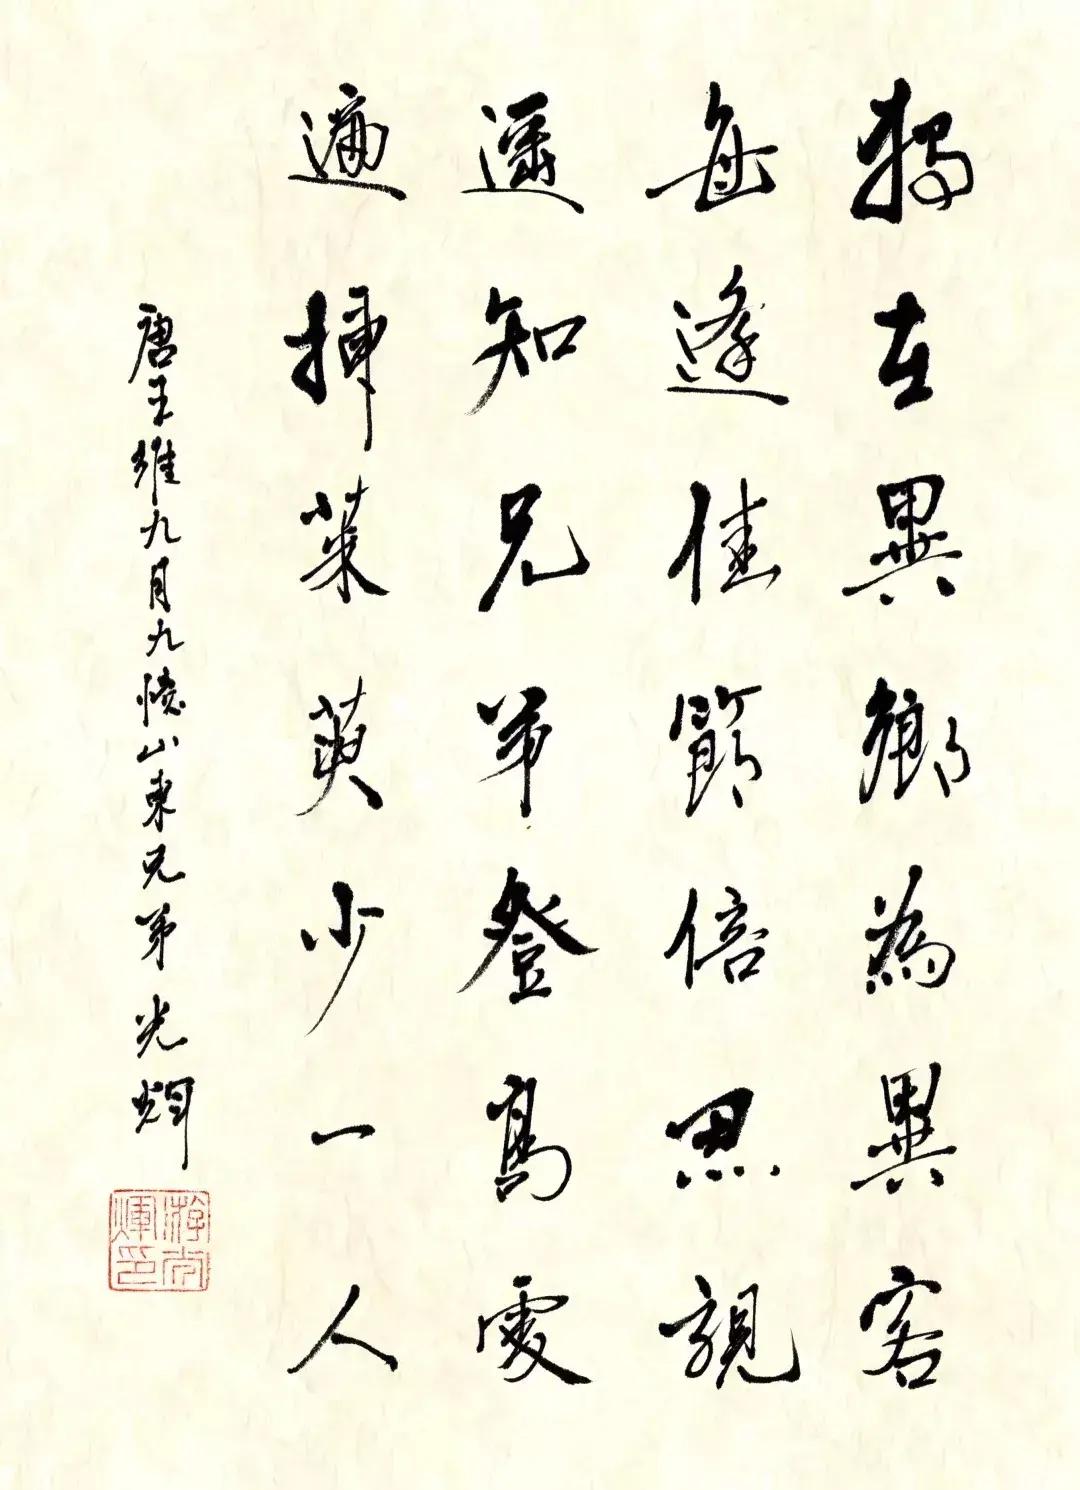 獨在異鄉為異客
每逢佳節倍思親
遥知兄弟登高處
遍插茱萸少一人
唐王維九月九憶山東兄弟 光輝
游光輝印